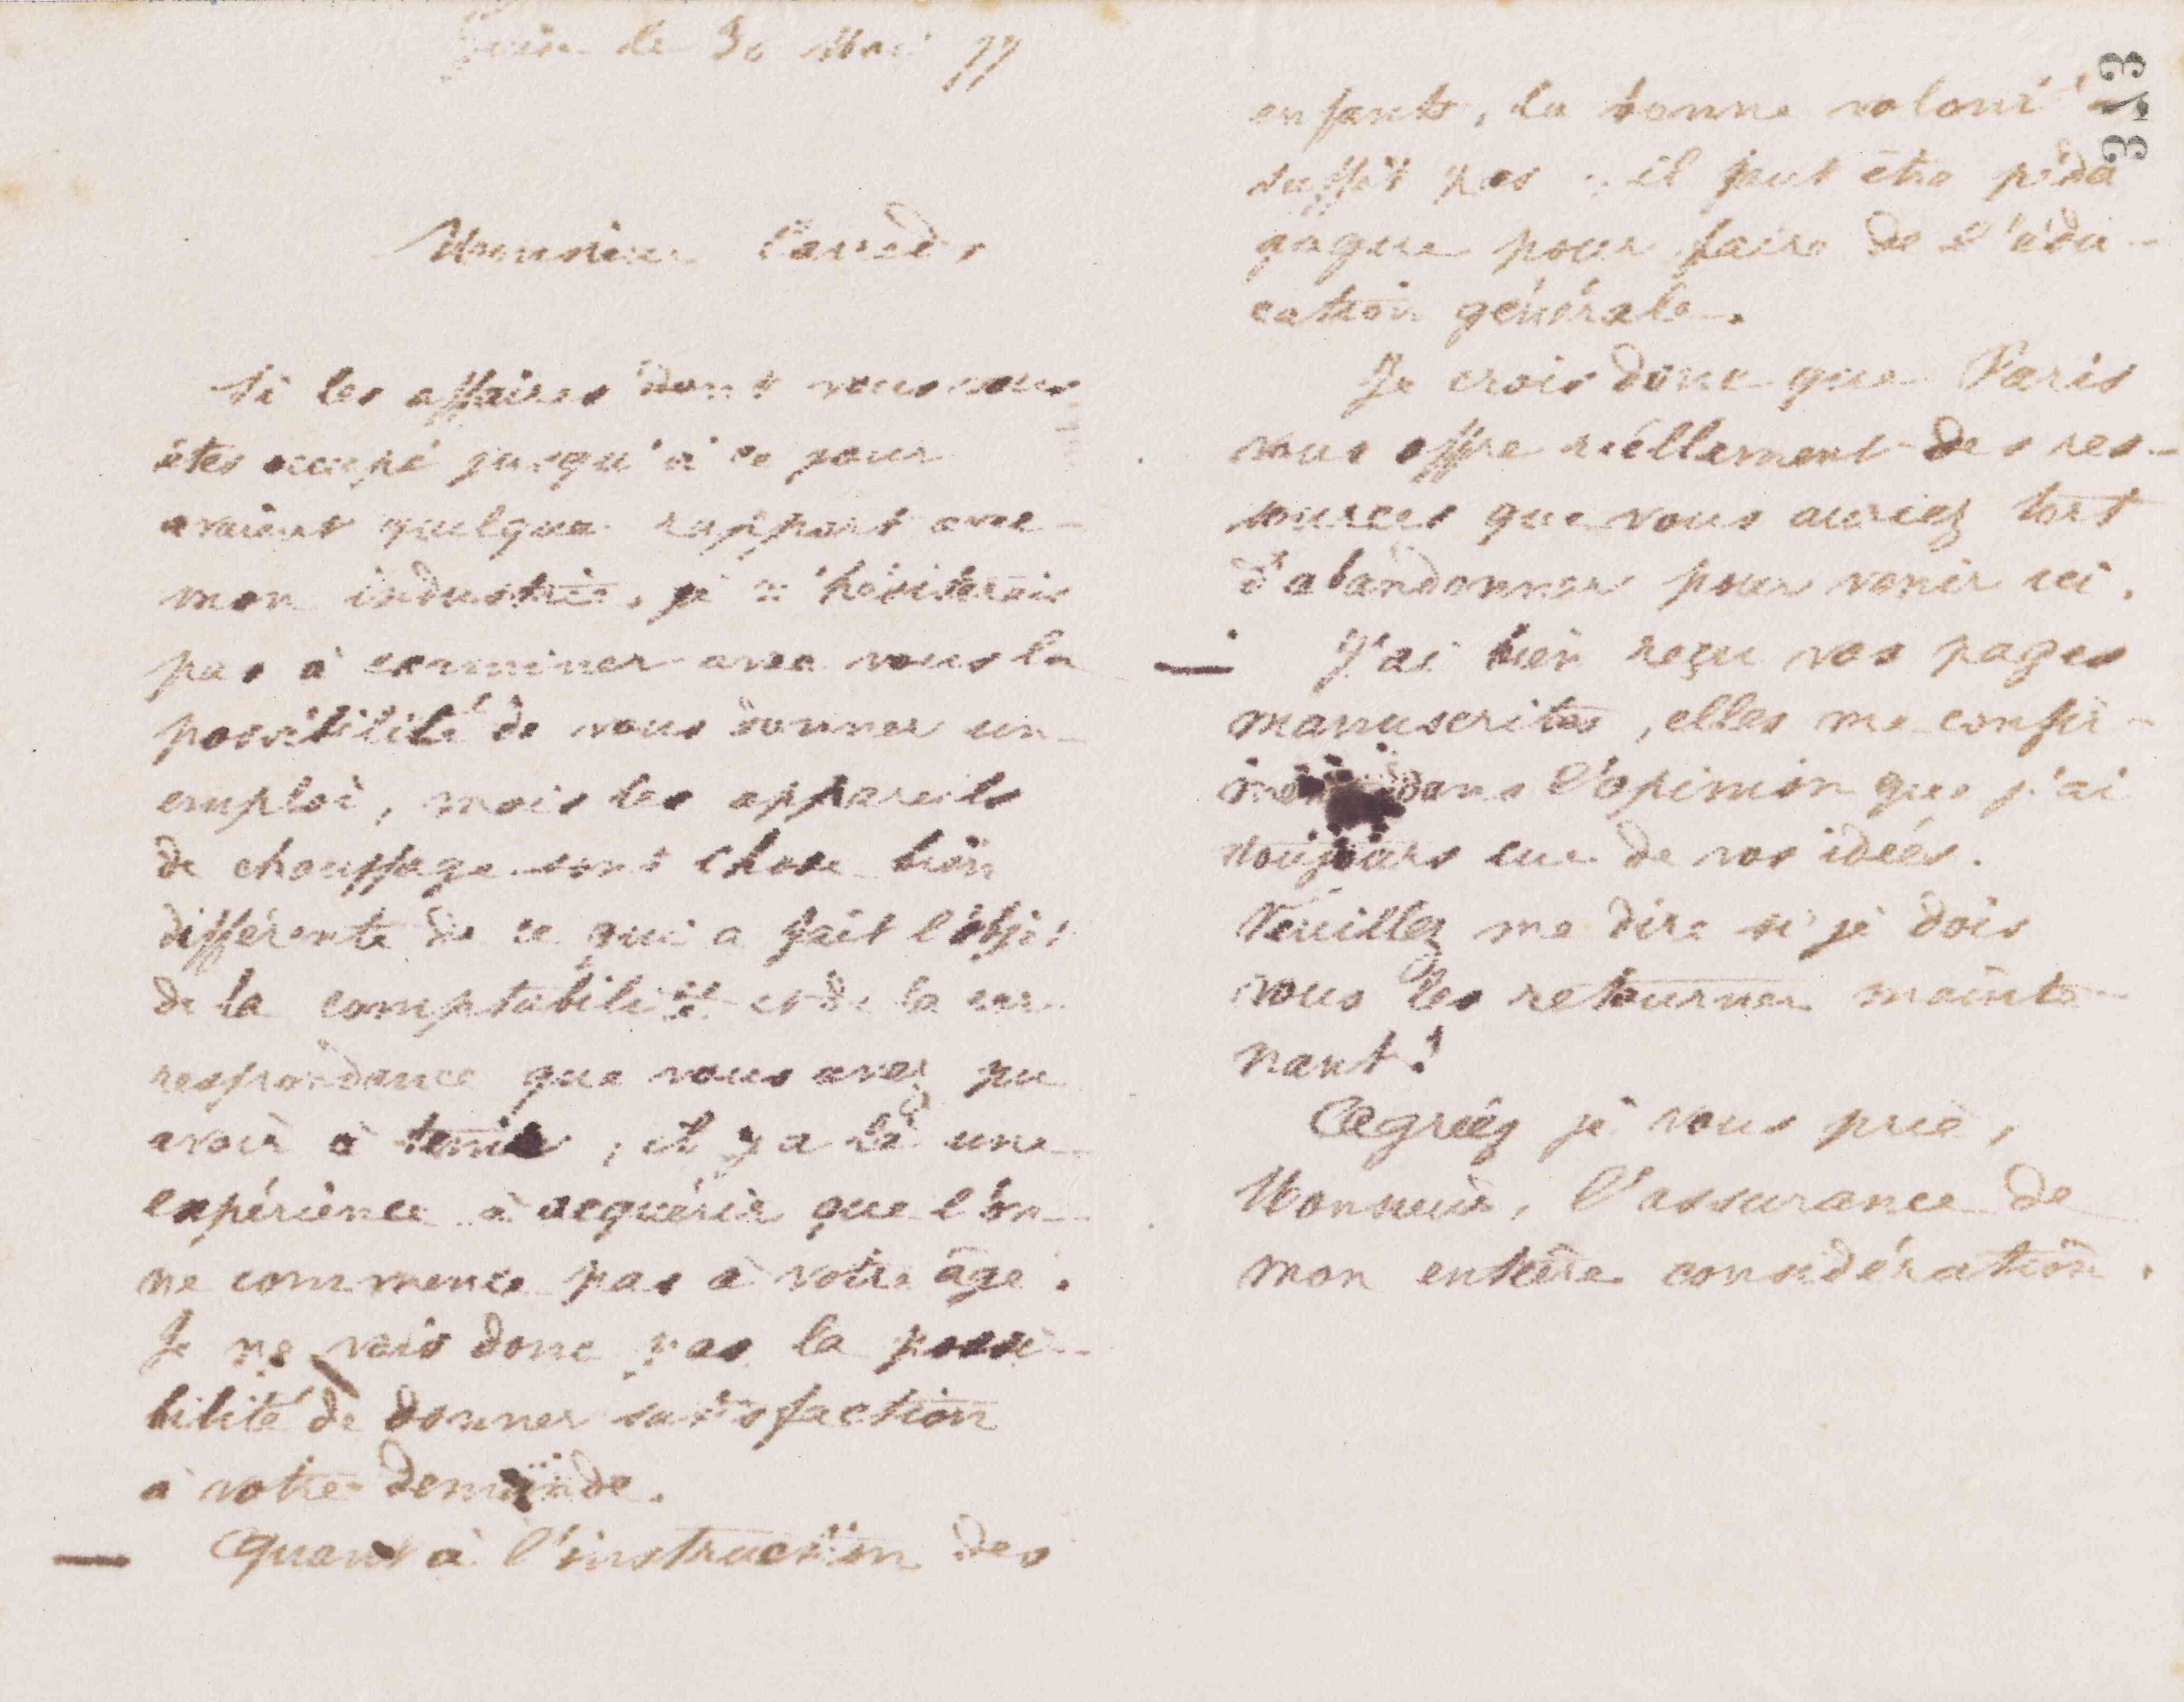 Guise le 30 Mai 77
Monsieur
Si les affaires dont vous vous
êtes occupé jusqu'à ce jour
avaient quelque rapport avec
mon industrie, je n'hésiterais
pas à examiner avec vous la
possibilité de vous donner un
emploi, mais les appareils
de chauffage sont chose bien
différente de ce qui a fait l'objet
de la comptabilité et de la cor
respondance que vous avez pu
avoir à tenir, il y a là une
expérience à acquérir que l'on
ne commence pas à votre âge.
Je ne vois donc pas la possi-
bilité de donner satisfaction
à votre demande.
— Quant à l'instruction des
313
enfants, la bonne volonté
suffit pas ; il faut être péda
gogue pour faire de l'édu-
cation générale.
Je crois donc que Paris
vous offre réellement des res-
sources que vous auriez tort
d'abandonner pour venir ici.
— J'ai bien reçu vos pages
manuscrites, elles me confir-
ment dans l'opinion que j'ai
toujours eue de vos idées.
Veuillez me dire si je dois
vous les retourner mainte-
nant!
Agréez je vous prie,
Monsieur, l'assurance de
mon entière considération.